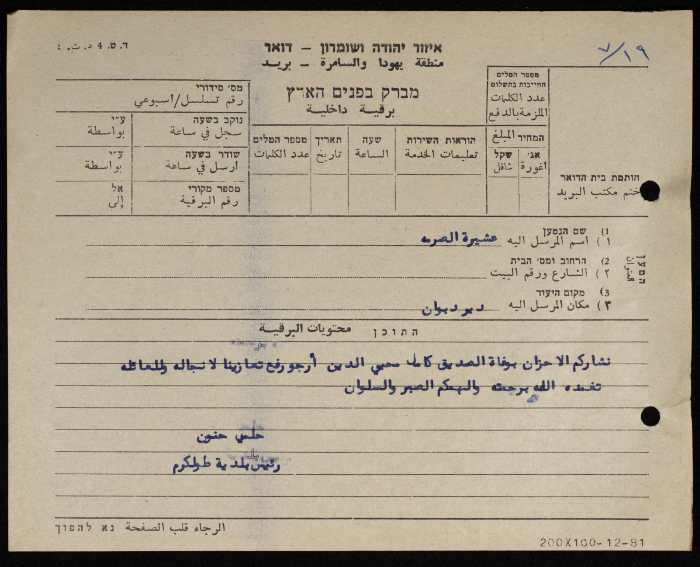 ד.ט. 4 ד.ת. :
איזור יהודה ושומרון - דואר
منطقة يهودا والسامرة - بريد
٧/١٩
מברק בפנים הארץ
برقية داخلية
מס' סידורי
رقم تسلسل/اسبوعي אסבועי
מספר המלים
החייבות בתשלום
عدد الكلمات
الملزمة بالدفع
המחיר المبلغ
אג' اغورة
שקל شاقل
הוראות השירות
تعليمات الخدمة
שעה
الساعة
תאריך
تاريخ
מספר המלים
عدد الكلمات
נוקב בשעה
سجل في ساعة
ע"י
بواسطة
שודר בשעה
ارسل في ساعة
ע"י
بواسطة
מספר מקורי
رقم البرقية
אל
إلى
חותמת בית הדואר
ختم مكتب البريد
המען
العنوان
1) שם הנמען
١) اسم المرسل اليه عشيرة الصرمه
2) הרחוב ומס' הבית
٢) الشارع ورقم البيت
3) מקום היעוד
٣) مكان المرسل اليه ديردبوان
התוכן محتويات البرقية
نشاركم الاحزان بوفاة الصديق كامل محيي الدين أرجو رفع تعازينا لانجاله وللعائله
تغمده الله برحمته والهمكم الصبر والسلوان
حلمي حنون
رئيس بلدية طولكرم
الرجاء قلب الصفحة נא להפוך
200X100-12-81